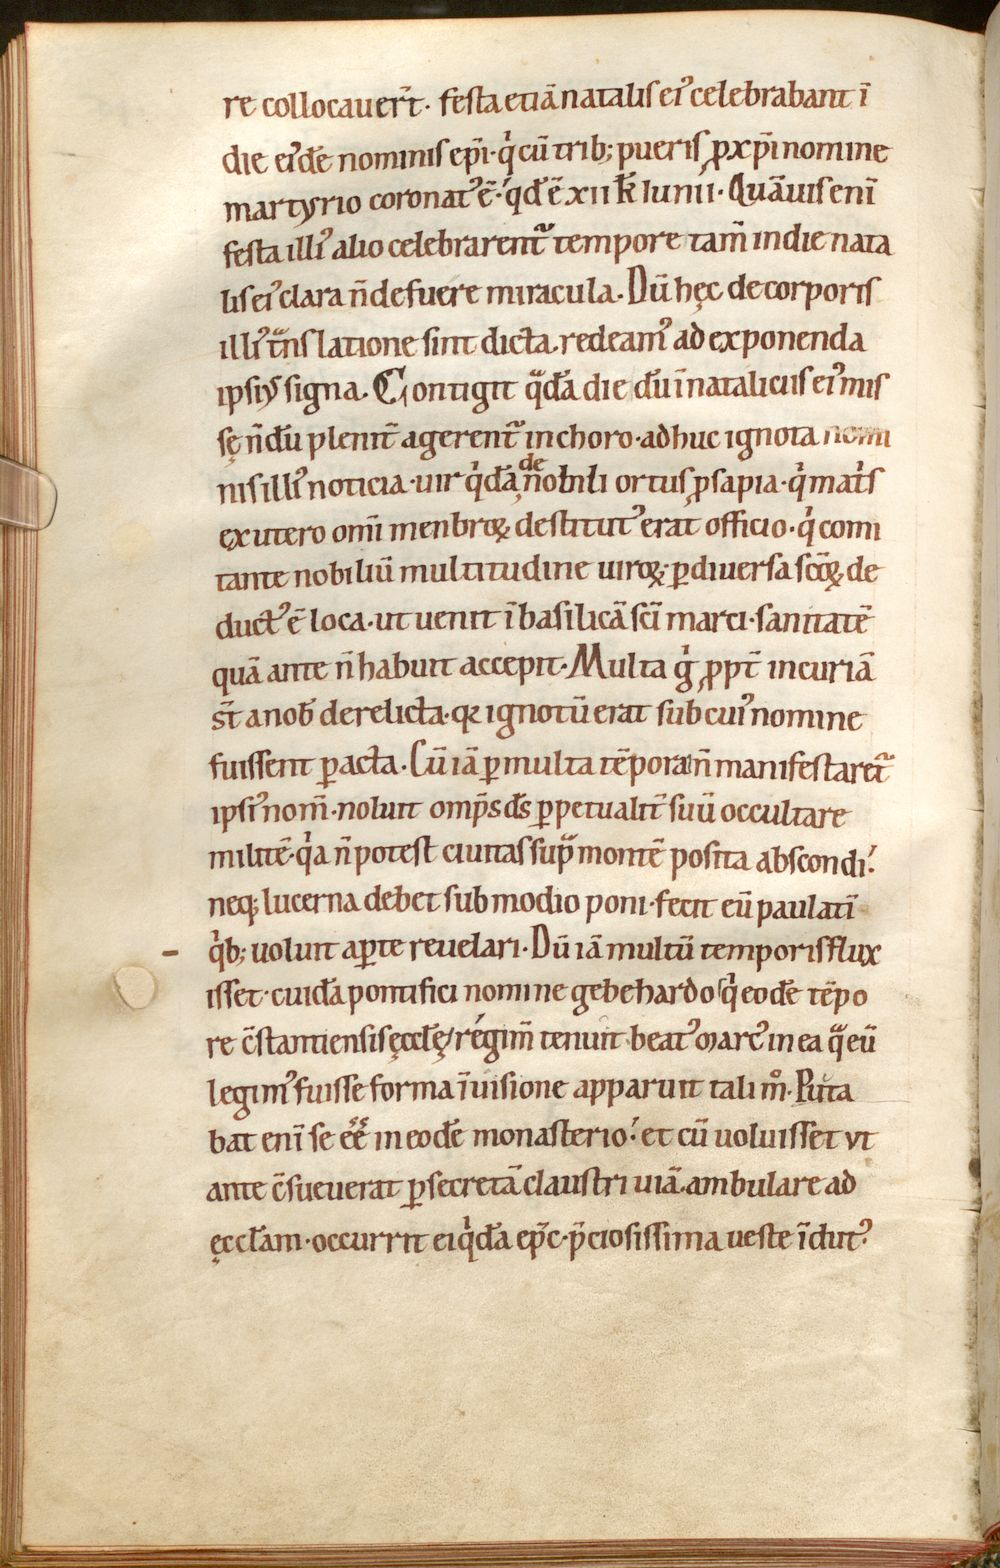 re collocauer̄t. festa etiā natalis ei᾽ celebrabant ī
die ei᾽dē nominis ep̄i. q̇ cū trib; pueris ꝓ xp̄i nomine
martyrio coronat᾽ ē. qd̄ ē xii k̄ Iunii. Quāuis enī
festa illi᾽ alio celebrarent᷑ tempore tam̄ in die nata
lis ei᾽ clara n̄ defuere miracula. Dū hęc de corporis
illi᾽ tᷓnslatione sint dicta. redeam᾽ ad exponenda
ipsi᾽ signa. Contigit qᷓdā die dū ī nataliciis ei᾽ mis
sę n̄dū plenit̄ agerent᷑ in choro. adhuc ignota nomi
nis illi᾽ noticia. uir q̇dā de nobili ortus ꝓsapia. q̇ mat̓s
ex utero omī menbroꝝ destitut᾽ erat officio. q̇ comi
tante nobiliū multitudine uiroꝝ. ꝑ diuersa sc̄oꝝ de
duct᾽ ē loca. ut uenit ī basilicā sc̄i marci. sanitatē
quā ante n̄ habuit accepit. Multa g̓ ꝓpt̄ incuriā
s̄t a nob̄ derelicta. qꝛ ignotū erat sub cui᾽ nomine
fuissent ꝑacta. Cū iā ꝑ multa tēpora n̄ manifestaret᷑
ipsi᾽ nom̄. noluit omp̄s d̄s ꝑpetualit̄ suū occultare
militē. q̇a n̄ potest ciuitas supᷓ montē posita abscondi.᾽
neq; lucerna debet sub modio poni. fecit eū paulatī
q̇b; uoluit aꝑte reuelari. Dū iā multū temporis flux
isset. cuidā pontifici nomine gebehardo q̇ eodē tēpo
re c̄stantiensis ęcclę̄ régim̄ tenuit beat᾽ marc᾽ in ea qᷓ eū
legim᾽ fuisse forma ī uisione apparuit tali m̊. Puta
bat enī se eē̄ in eodē monasterio.᾽ et cū uoluisset vt
ante c̄sueuerat ꝑ secretā claustri uiā. ambulare ad
ęccl̄am. occurrit ei q̇dā ep̄c. p̄ciosissima ueste īdut᾽